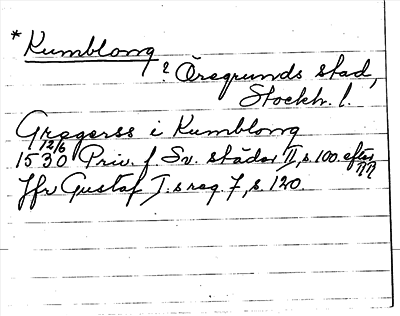 * Kumblong
? Öregrunds stad,
Stockh. l.
Gregerss i Kumblong
12/6
1530 Priv. f. Sv. städer II, s. 100. efter
Jfr Gustaf I:s reg. 7, s. 120.